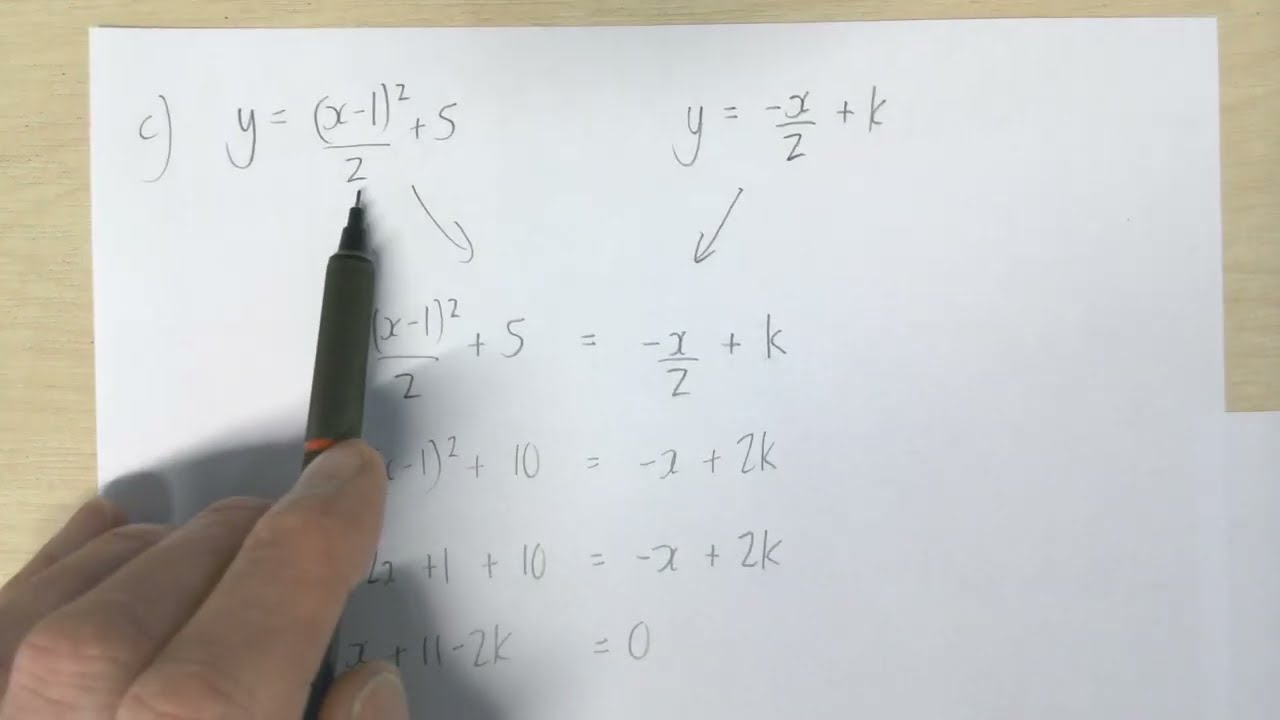 c) y = (x-1)²/2 + 5 y = -x/2 + k
(x-1)²/2 + 5 = -x/2 + k
x-1)² + 10 = -x + 2k
2x + 1 + 10 = -x + 2k
x + 11 - 2k = 0